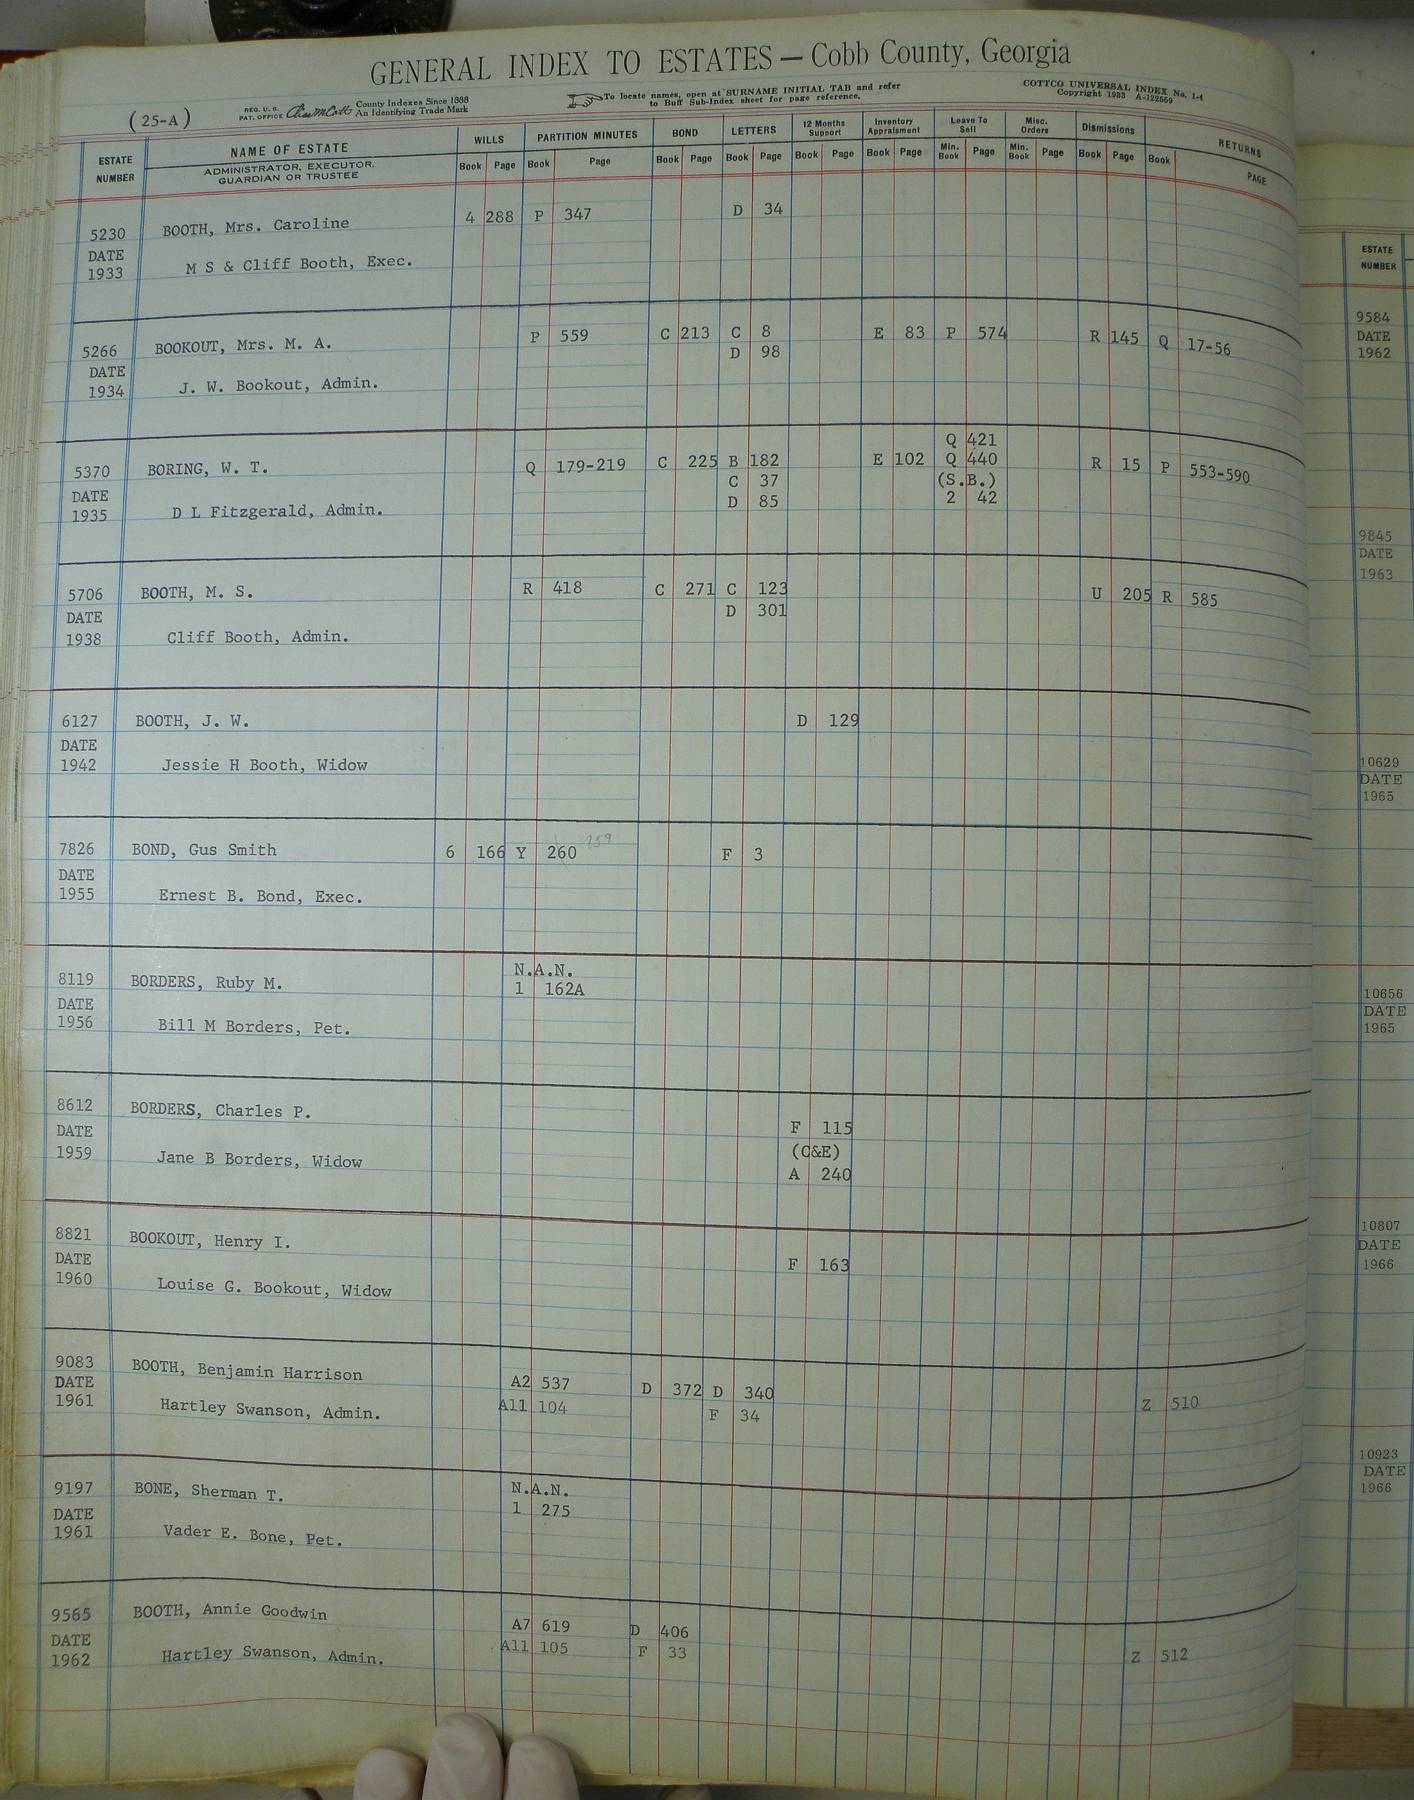 GENERAL INDEX TO ESTATES — Cobb County, Georgia
(25-A)
REG. U. S. PAT. OFFICE
County Indexes Since 1888
An Identifying Trade Mark
To locate names, open at SURNAME INITIAL TAB and refer
to Buff Sub-Index sheet for page reference.
COTTCO UNIVERSAL INDEX No. 1-4
Copyright 1933 A-122669
ESTATE NUMBER NAME OF ESTATE WILLS PARTITION MINUTES BOND LETTERS 12 Months Support Inventory Appraisment Leave To Sell Misc. Orders Dismissions RETURNS
ADMINISTRATOR, EXECUTOR, GUARDIAN OR TRUSTEE Book Page Book Page Book Page Book Page Book Page Book Page Min. Book Page Min. Book Page Book Page Book PAGE
5230 BOOTH, Mrs. Caroline 4 288 P 347 D 34
DATE
1933 M S & Cliff Booth, Exec.
5266 BOOKOUT, Mrs. M. A. P 559 C 213 C 8 E 83 P 574 R 145 Q 17-56
DATE D 98
1934 J. W. Bookout, Admin.
Q 421
5370 BORING, W. T. Q 179-219 C 225 B 182 E 102 Q 440 R 15 P 553-590
DATE C 37 (S.B.)
1935 D L Fitzgerald, Admin. D 85 2 42
5706 BOOTH, M. S. R 418 C 271 C 123 U 205 R 585
DATE D 301
1938 Cliff Booth, Admin.
6127 BOOTH, J. W. D 129
DATE
1942 Jessie H Booth, Widow
7826 BOND, Gus Smith 6 166 Y 260 259 F 3
DATE
1955 Ernest B. Bond, Exec.
N.A.N.
8119 BORDERS, Ruby M. 1 162A
DATE
1956 Bill M Borders, Pet.
8612 BORDERS, Charles P.
DATE F 115
1959 Jane B Borders, Widow (C&E)
A 240
8821 BOOKOUT, Henry I.
DATE F 163
1960 Louise G. Bookout, Widow
9083 BOOTH, Benjamin Harrison
DATE A2 537 D 372 D 340
1961 Hartley Swanson, Admin. A11 104 F 34 Z 510
9197 BONE, Sherman T. N.A.N.
DATE 1 275
1961 Vader E. Bone, Pet.
9565 BOOTH, Annie Goodwin
DATE A7 619 D 406
1962 Hartley Swanson, Admin. A11 105 F 33 Z 512
ESTATE
NUMBER
9584
DATE
1962
9845
DATE
1963
10629
DATE
1965
10656
DATE
1965
10807
DATE
1966
10923
DATE
1966